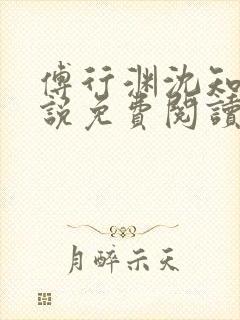 傅行渊沈知
説免費閱讀
月醉示天